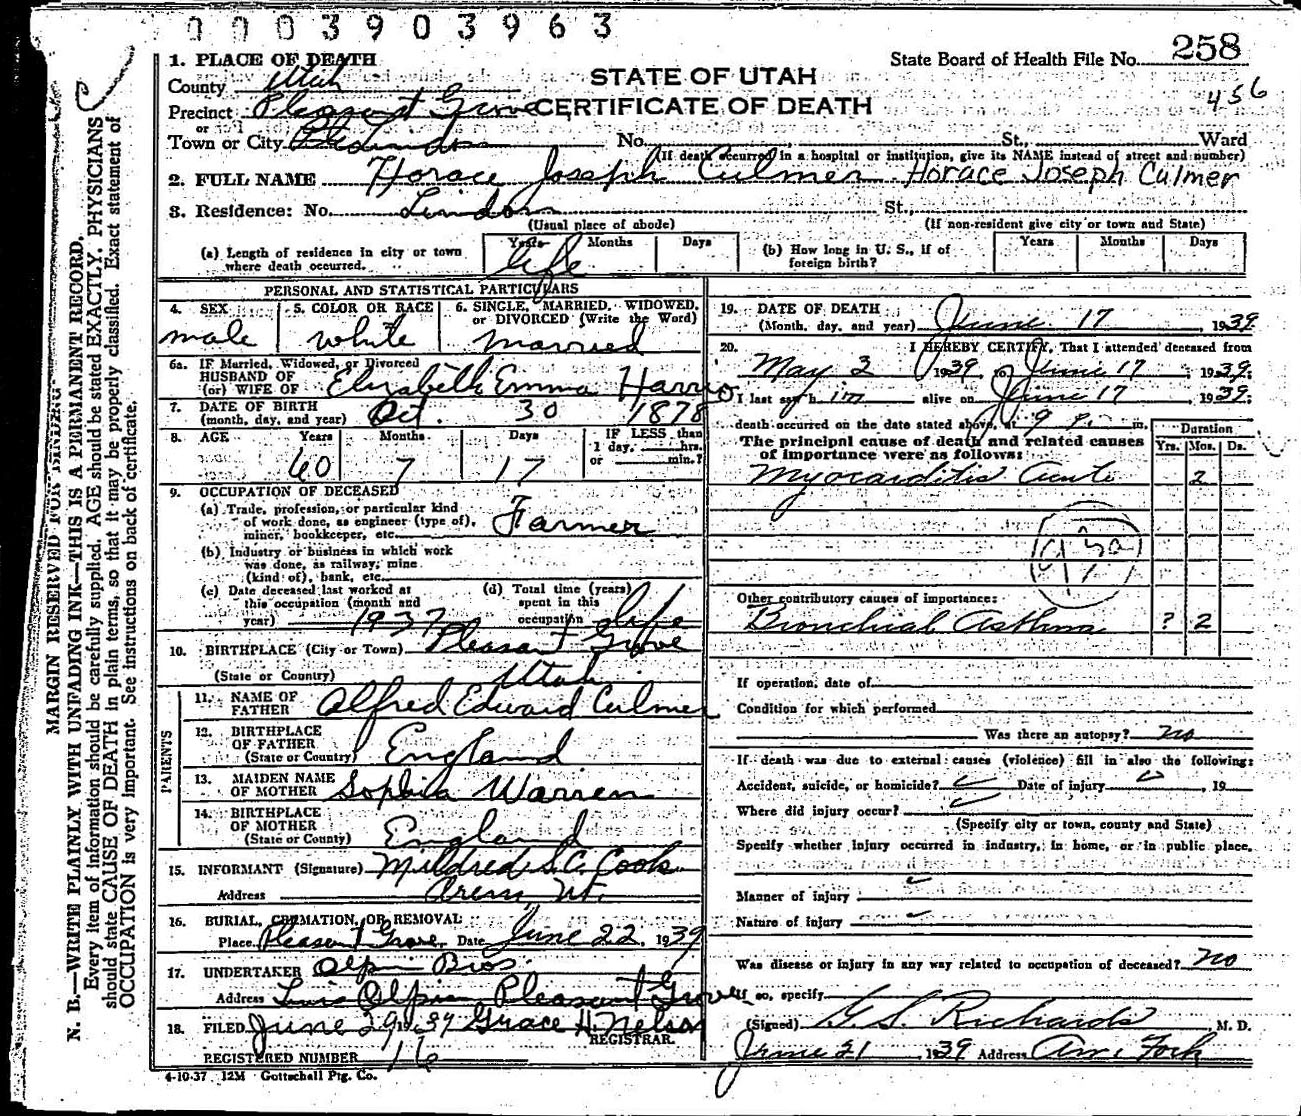 0003903963
State Board of Health File No. 258
456
STATE OF UTAH
CERTIFICATE OF DEATH
1. PLACE OF DEATH
County Utah
Precinct Pleasant Grove
or
Town or City Lindon No. St., Ward
(If death occurred in a hospital or institution, give its NAME instead of street and number)
2. FULL NAME Horace Joseph Culmer Horace Joseph Culmer
3. Residence: No. Lindon St.,
(Usual place of abode) (If non-resident give city or town and State)
(a) Length of residence in city or town where death occurred. Years Months Days
life
(b) How long in U. S., if of foreign birth? Years Months Days
PERSONAL AND STATISTICAL PARTICULARS
4. SEX 5. COLOR OR RACE 6. SINGLE, MARRIED, WIDOWED, or DIVORCED (Write the Word)
male white married
6a. IF Married, Widowed, or Divorced
HUSBAND OF
(or) WIFE OF Elizabeth Emma Harris
7. DATE OF BIRTH
(month, day, and year) Oct. 30 1878
8. AGE Years Months Days IF LESS than
1 day, hrs.
or min.?
60 7 17
9. OCCUPATION OF DECEASED
(a) Trade, profession, or particular kind
of work done, as engineer (type of),
miner, bookkeeper, etc. Farmer
(b) Industry or business in which work
was done, as railway, mine
(kind of), bank, etc.
(c) Date deceased last worked at
this occupation (month and
year) 1937
(d) Total time (years)
spent in this
occupation life
10. BIRTHPLACE (City or Town) Pleasant Grove
(State or Country) Utah
PARENTS
11. NAME OF
FATHER Alfred Edward Culmer
12. BIRTHPLACE
OF FATHER
(State or Country) England
13. MAIDEN NAME
OF MOTHER Sophia Warren
14. BIRTHPLACE
OF MOTHER
(State or County) England
15. INFORMANT (Signature) Mildred S. C. Cook
Address Orem, Ut.
16. BURIAL, CREMATION, OR REMOVAL
Place Pleasant Grove Date June 22, 1939
17. UNDERTAKER Olpin Bros.
Address Olpin Pleasant Grove
18. FILED June 29 1939 Grace H. Nelson
REGISTRAR.
REGISTERED NUMBER 16
4-10-37 12M Gottschall Ptg. Co.
19. DATE OF DEATH
(Month, day, and year) June 17, 1939
20. I HEREBY CERTIFY, That I attended deceased from
May 2 1939 to June 17, 1939;
I last saw him alive on June 17, 1939;
death occurred on the date stated above, at 9 P. m.
The principal cause of death and related causes
of importance were as follows:
Duration
Yrs. Mos. Ds.
Myocarditis Acute 2
Other contributory causes of importance:
Bronchial Asthma ? 2
If operation, date of
Condition for which performed
Was there an autopsy? no
If death was due to external causes (violence) fill in also the following:
Accident, suicide, or homicide? Date of injury , 19
Where did injury occur?
(Specify city or town, county and State)
Specify whether injury occurred in industry, in home, or in public place.
Manner of injury
Nature of injury
Was disease or injury in any way related to occupation of deceased? no
If so, specify
(Signed) G. S. Richards M. D.
June 21, 1939 Address Am. Fork
MARGIN RESERVED FOR BINDING
N. B.—WRITE PLAINLY WITH UNFADING INK—THIS IS A PERMANENT RECORD.
Every item of information should be carefully supplied. AGE should be stated EXACTLY. PHYSICIANS
should state CAUSE OF DEATH in plain terms, so that it may be properly classified. Exact statement of
OCCUPATION is very important. See instructions on back of certificate.